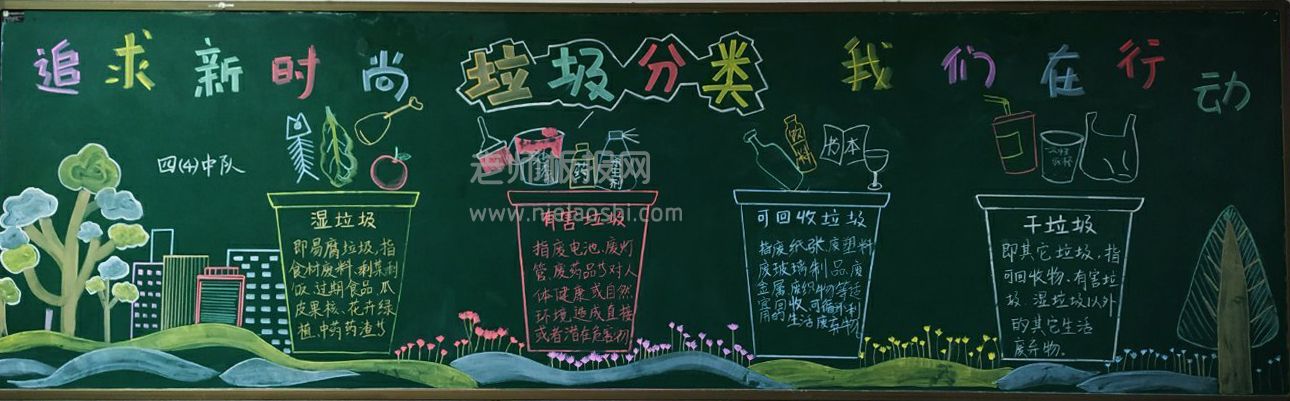 追求新时尚 垃圾分类 我们在行动
四(4)中队
湿垃圾
即易腐垃圾,指
食材废料、剩菜剩
饭、过期食品、瓜
皮果核、花卉绿
植、中药药渣等
有害垃圾
指废电池、废灯
管、废药品等对人
体健康或自然
环境造成直接
或者潜在危害物
药
饮料
书本
可回收垃圾
指废纸张、废塑料
废玻璃制品、废
金属、废织物等适
宜回收、可循环利
用的生活废弃物。
干垃圾
即其它垃圾,指
可回收物、有害垃
圾、湿垃圾以外
的其它生活
废弃物。
老师板报网
www.njelaoshi.com